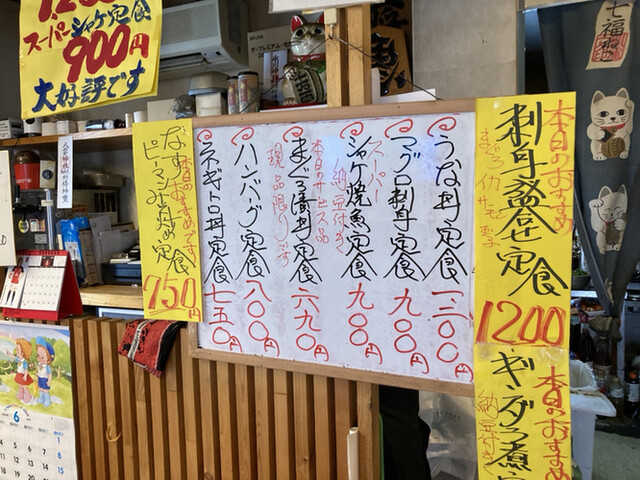 スーパーシャケ定食
900円
大好評です
七福
本日のおすすめ
刺身盛合せ定食
まぐろ イカ サーモン
1200
本日のおすすめ
ギンダラ煮定
納豆付き
うな丼定食 一二〇〇円
マグロ刺身定食 九〇〇円
スーパー
シャケ焼魚定食 九〇〇円
納豆付き
本日のサービス品
まぐろ漬丼定食 六九〇円
現品限りです
ハンバーグ定食 八〇〇円
ネギトロ丼定食 七五〇円
本日のおすすめです
なす
ピーマンみそ炒め定食
750円
6
1
8
15